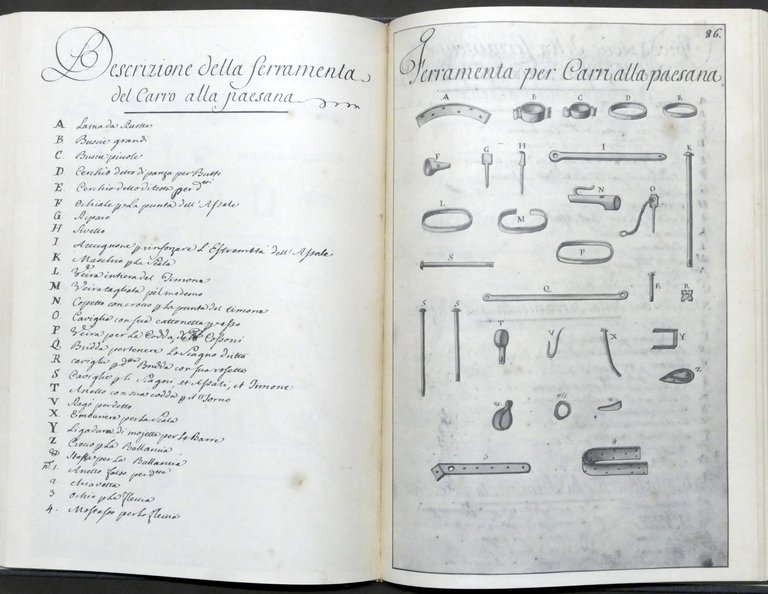 Descrizione della ferramenta
del Carro alla paesana
A Lama da Ruotta
B. Buscie grandi
C. Buscie picole
D. Cerchio detto di panza per Butti
E. Cerchio detto di testa per d.tti
F Ochiale p la punta dell'Assale
G Riparo
H
I Accugnone p rinforzare L'Estremittà dell'Assale
K Maschio p la Scala
L Veira intiera del Timone
M Veira tagliata pel medemo
N Copetto con crono p la punta del timone
O Caviglia con sua cattenetta p esso
P Veira per la Codda de Cossoni
Q Bridda per tenere Lo Scagno dritto
R caviglia p d.tta Bridda con sua rosetta
S Caviglie p li Scagni, et Assali, et Timone
T Anello con sua codda p il Torno
V per detto
X per la Scala
Y Ligadura di mojetta per le Barre
Z p la Ballancia
& per la Ballancia
N. 1. Anello falso per d.tta
2 Chiavetta
3 Ochio p la fleccia
4. per la fleccia
86.
Ferramenta per Carri alla paesana
A B C D E
F G H I K
L M N O
P
Q R R
S S S
T V X Y
Z
&
3 4